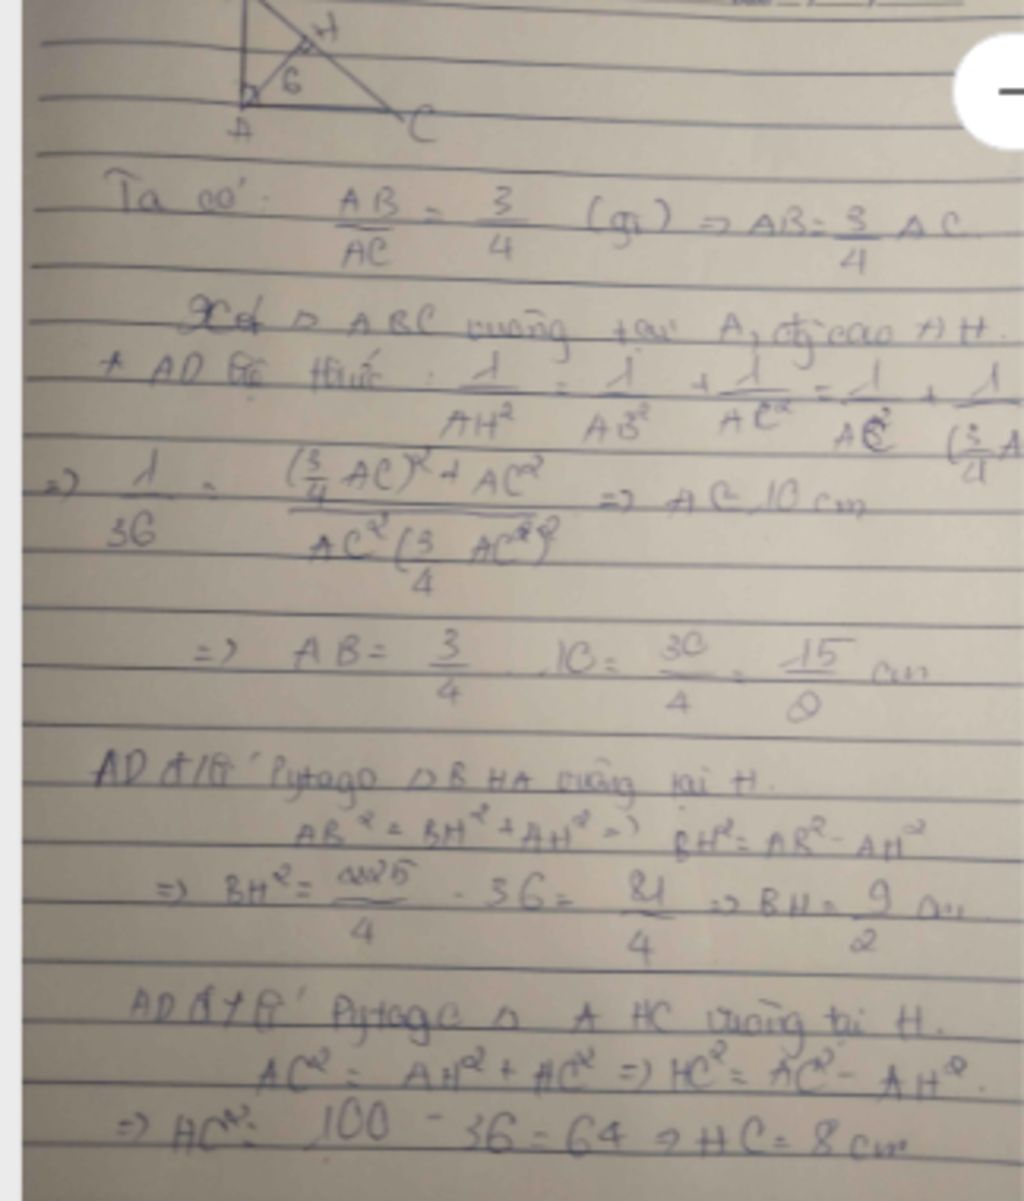 H
6
A C
Ta có: AB/AC = 3/4 (gt) => AB = 3/4 AC
Xét △ ABC vuông tại A, đg cao AH.
+ AD hệ thức: 1/AH² = 1/AB² + 1/AC² = 1/AC² + 1/(3/4 A
=> 1/36 = ((3/4 AC)² + AC²)/(AC² (3/4 AC²)²) => AC = 10 cm
=> AB = 3/4 . 10 = 30/4 = 15/2 cm
AD đ/lí Pytago △ BHA vuông tại H.
AB² = BH² + AH² => BH² = AB² - AH²
=> BH² = 225/4 - 36 = 81/4 => BH = 9/2 cm
AD đ/lí Pytago △ AHC vuông tại H.
AC² = AH² + HC² => HC² = AC² - AH².
=> HC² = 100 - 36 = 64 => HC = 8 cm